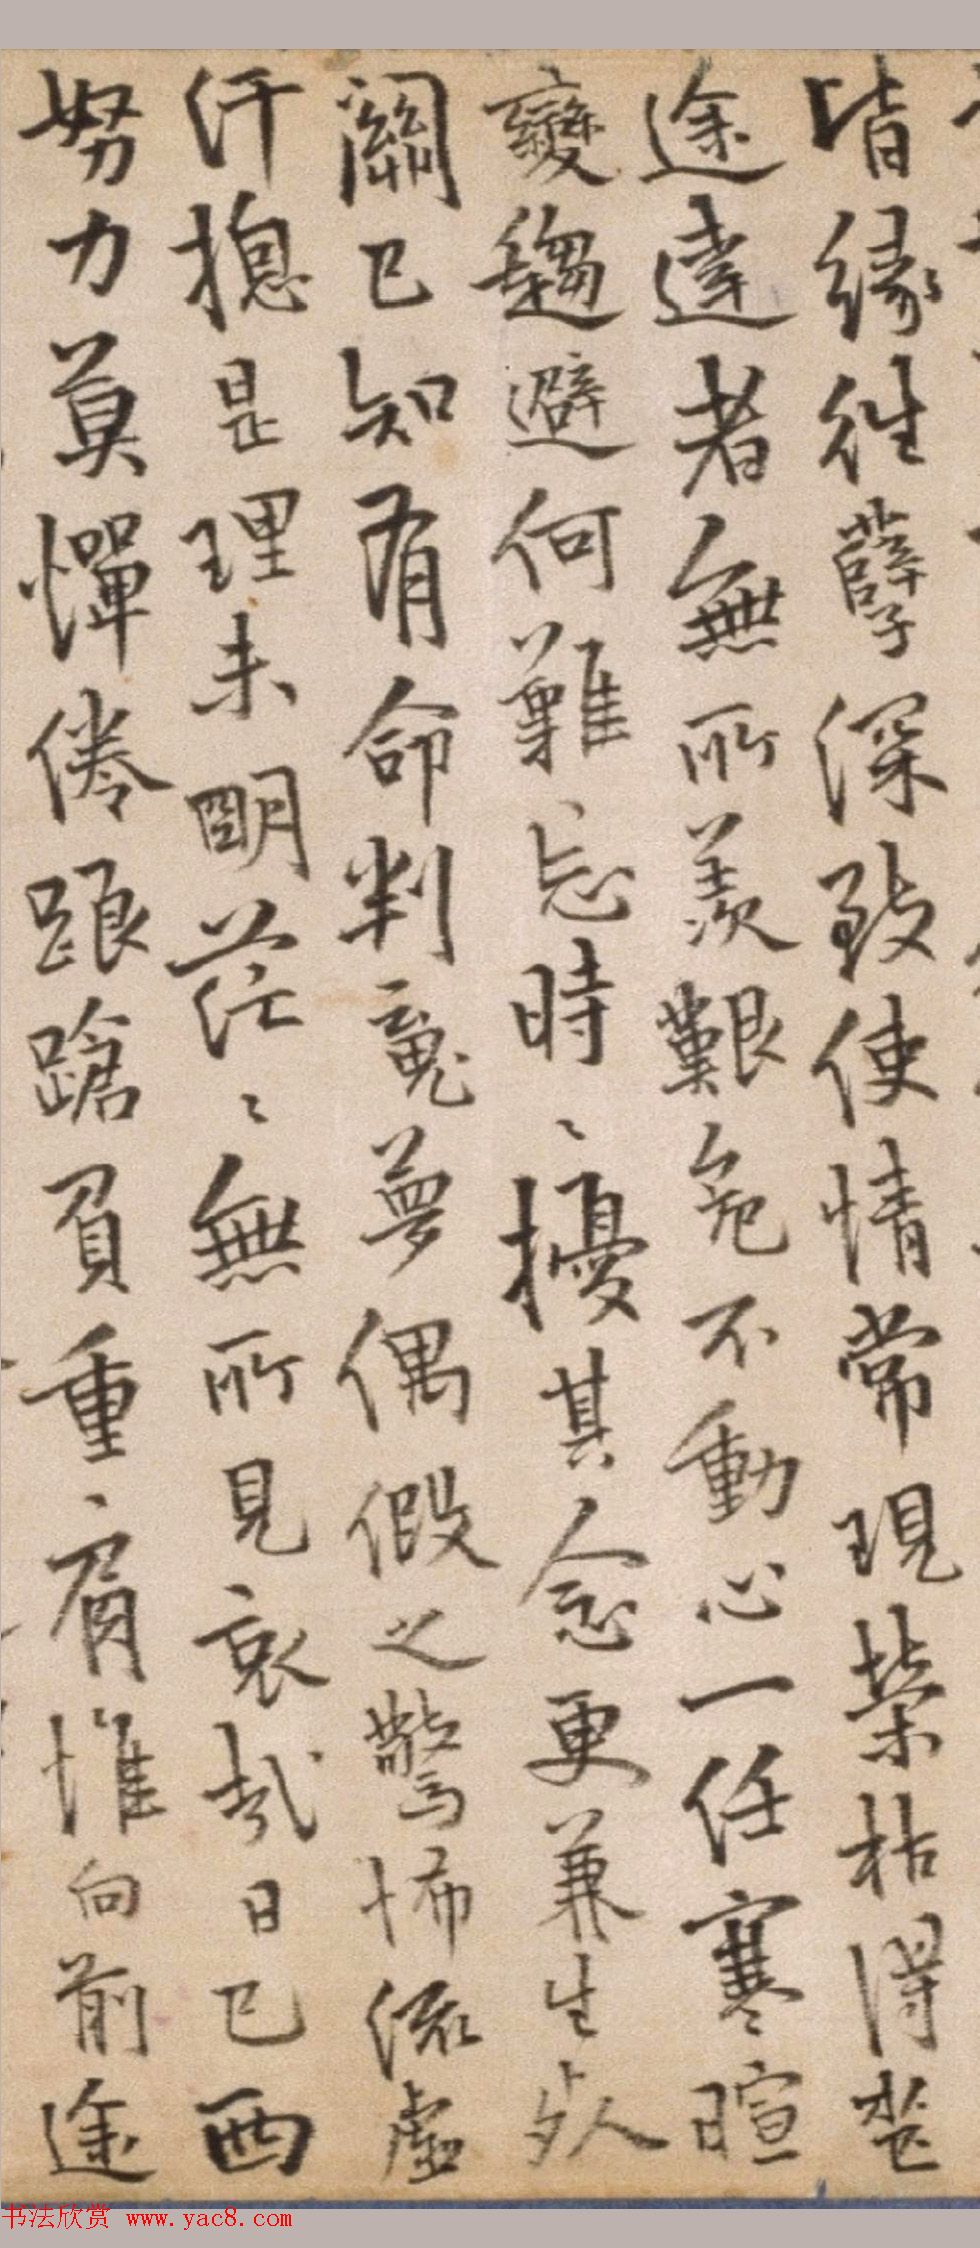 皆緣往孽深致使情常現榮枯得喪
途達者無所羨艱危不動心一任寒暄
變趨避何難忘時〻擾其念更兼生死
關已知有命判寬夢偶假之驚怖流虛
汗摠是理未明茫〻無所見哀哉日已西
努力莫憚倦踉蹌負重肩惟向前途
书法欣赏 www.yac8.com